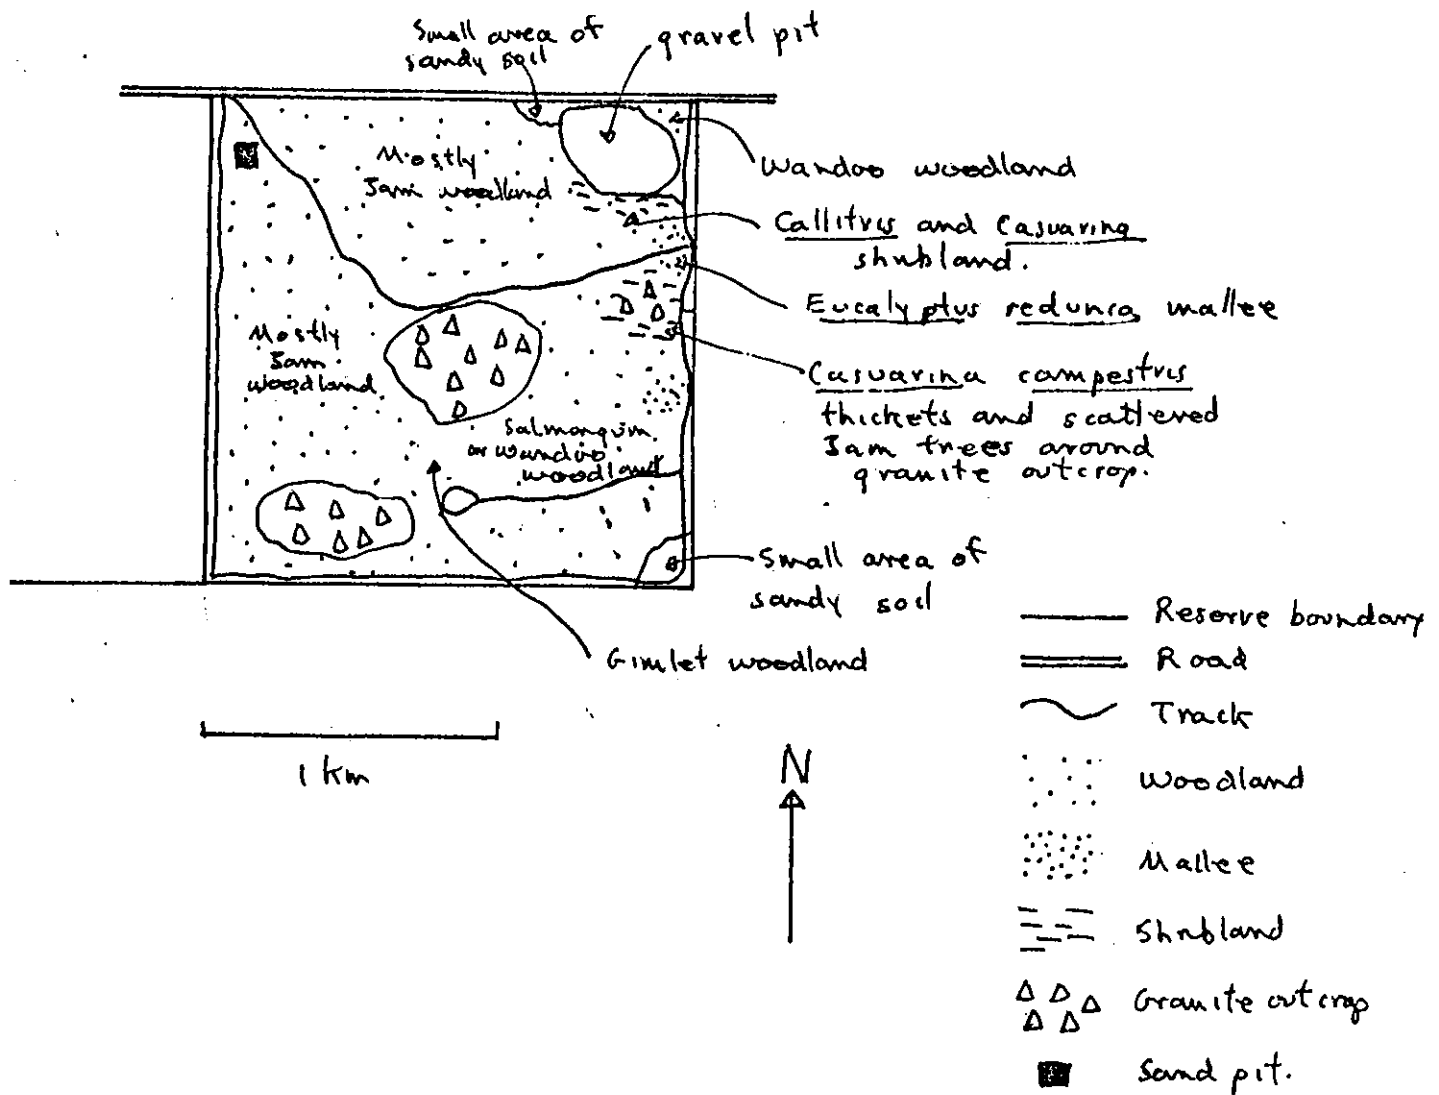 Small area of
sandy soil
gravel pit
Mostly
Jam woodland
Wandoo woodland
Callitris and Casuarina
shrubland.
Eucalyptus redunca mallee
Mostly
Jam
woodland
Casuarina campestris
thickets and scattered
Jam trees around
granite outcrop.
Salmongum
or wandoo
woodland
Small area of
sandy soil
Gimlet woodland
1 km
N
Reserve boundary
Road
Track
Woodland
Mallee
Shrubland
Granite outcrop
Sand pit.